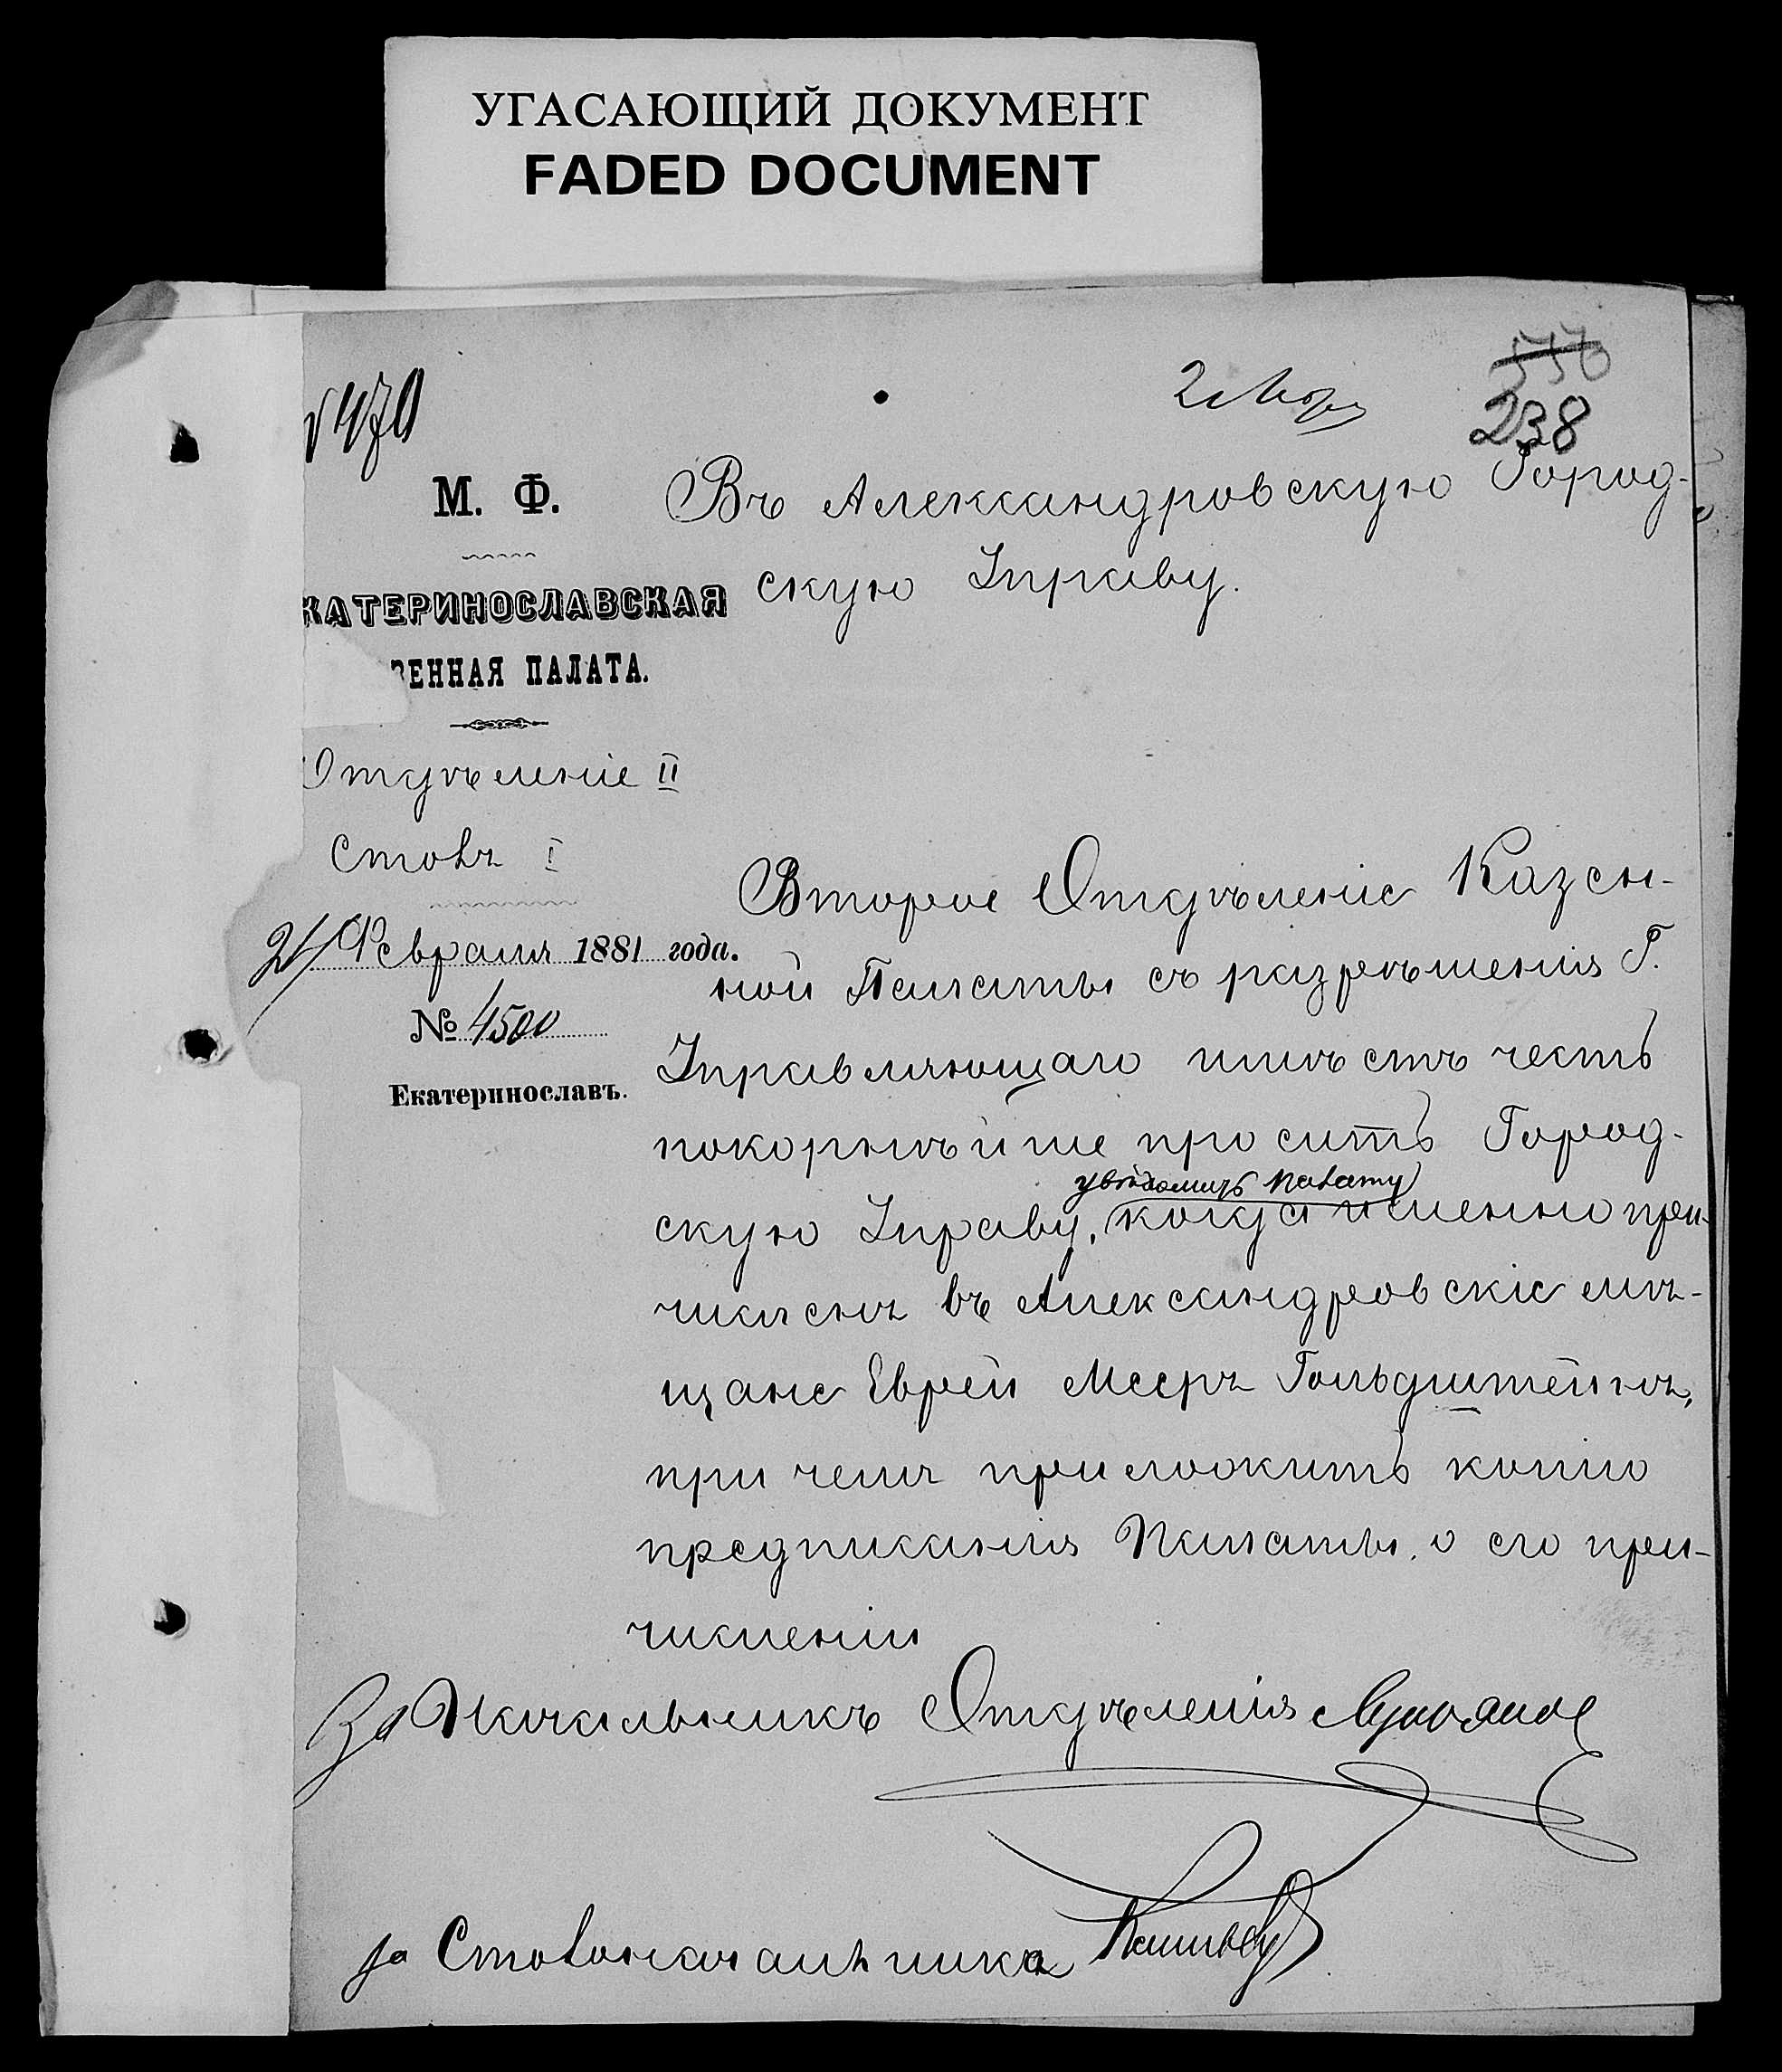 УГАСАЮЩИЙ ДОКУМЕНТ
FADED DOCUMENT
550
238
М. Ф.
КАТЕРИНОСЛАВСКАЯ
ЗЕННАЯ ПАЛАТА.
Отдѣленіе II
Столъ I
Февраля 1881 года.
№ 4500
Екатеринославъ.
Въ Александровскую Город-
скую Управу.
Второе Отдѣленіе Казен-
ной Палаты съ разрѣшенія Г.
Управляющаго имѣетъ честь
покорнѣйше просить Город-
увѣдомить палату
скую Управу, когда именно при-
численъ въ Александровскіе мѣ-
щане Еврей Мееръ Гольдштейнъ,
при чемъ приложить копію
предписанія Палаты о его при-
численіи
За Начальникъ Отдѣленія
за Столоначальника